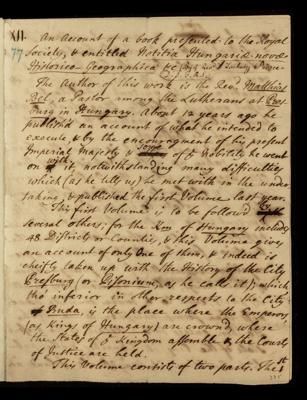 XII.
77
An Account of a book presented to the Royal
Society, & entitled Notitia Hungariæ novæ
Historico Geographica &c
The Author of this work is the Rev. Matthias
Bel, a Pastor among the Lutherans at Pres-
burg in Hungary. About 12 years ago he
published an account of what he intended to
execute & by the encouragement of his present
Imperial Majesty & some of ye Nobility he went
on with it notwithstanding many difficulties
which (as he tells us) he met with in the under
taking & published the first Volume last year.
This first Volume is to be followed by
several others; for the Km of Hungary includes
48 Districts or Counties, & this Volume gives
an account of only One of them, & indeed is
chiefly taken up with the History of the City
Presburg (or Posonium, as he calls it) which
tho inferior in other respects to the City
of Buda, is the place where the Emperors
(as Kings of Hungary) are crown'd, where
the States of ye Kingdom assemble & the Courts
of Justice are held.
This Volume consists of two parts. The 1st